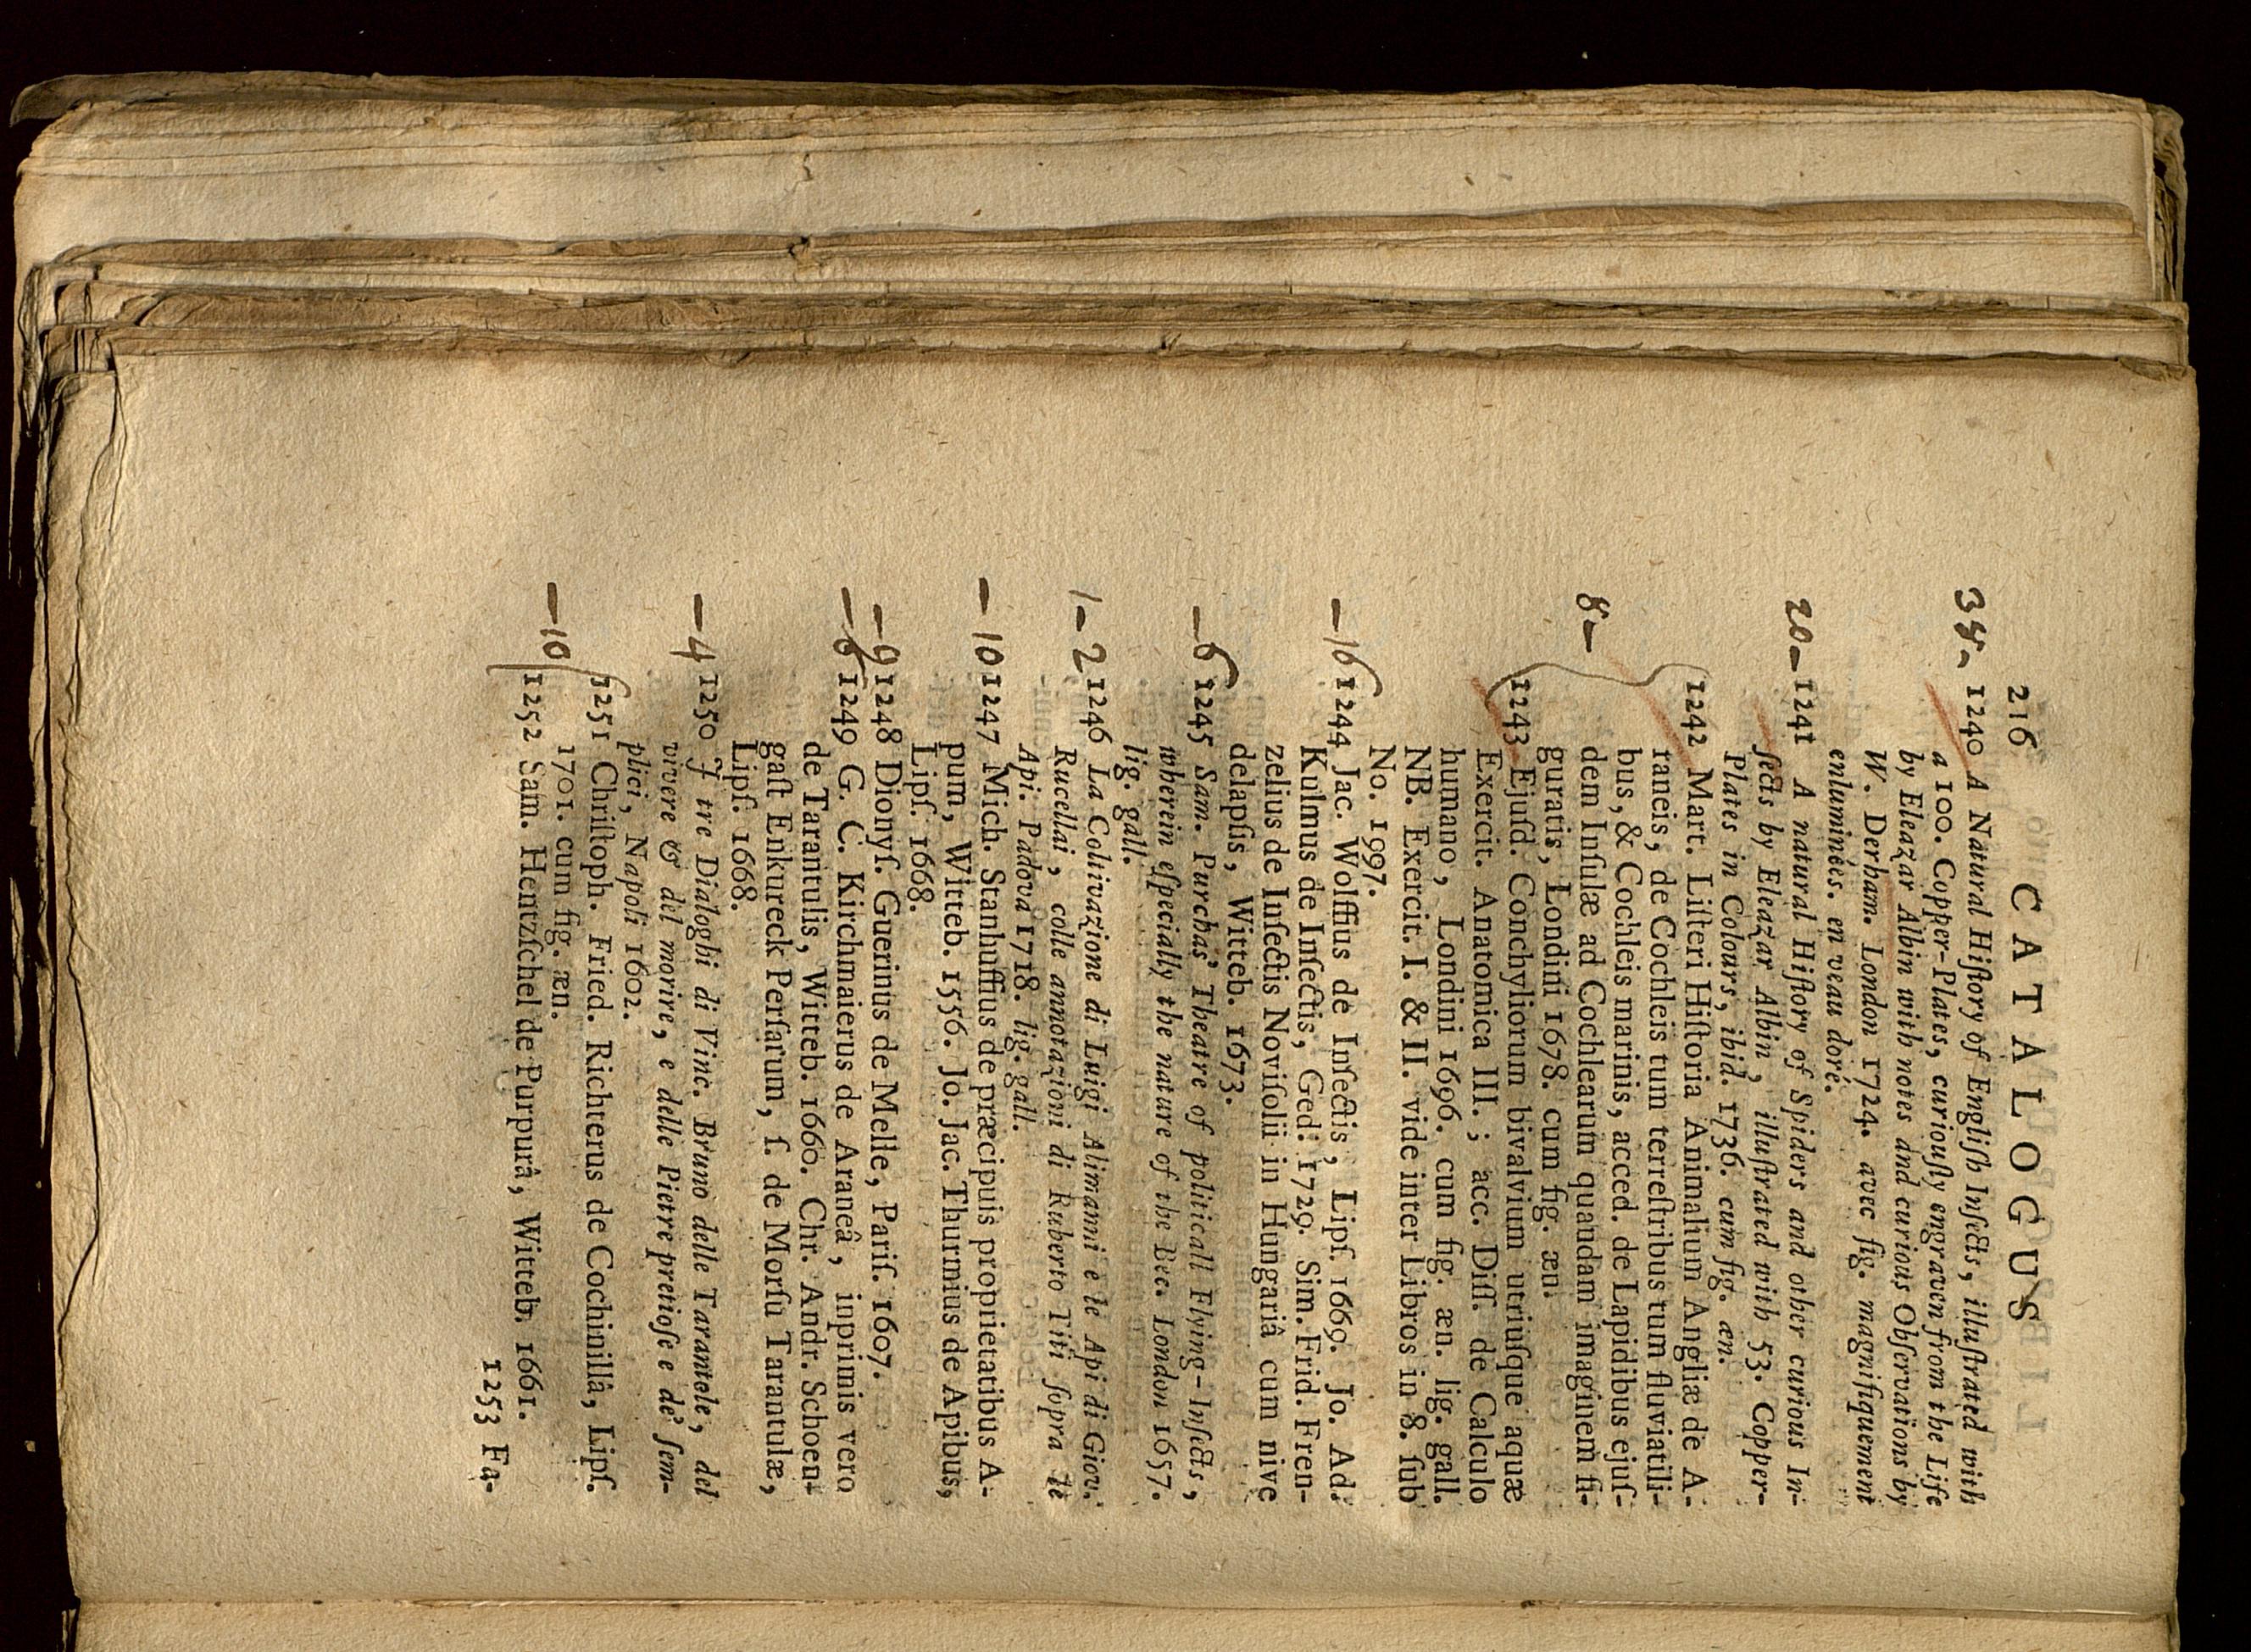 216 CATALOGUS
38- 1240 A Natural Hiſtory of Engliſh Inſects, illuſtrated with
a 100. Copper-Plates, curiouſly engraven from the Life
by Eleazar Albin with notes and curious Obſervations by
W. Derham. London 1724. avec fig. magnifiquement
enluminées. en veau doré.
20- 1241 A natural Hiſtory of Spiders and other curious In-
ſects by Eleazar Albin, illuſtrated with 53. Copper-
Plates in Colours, ibid. 1736. cum fig. æn.
1242 Mart. Liſteri Hiſtoria Animalium Angliæ de A-
raneis, de Cochleis tum terreſtribus tum fluviatili-
bus, & Cochleis marinis, acced. de Lapidibus ejuſ-
dem Inſulæ ad Cochlearum quandam imaginem fi-
8- guratis, Londini 1678. cum fig. æn.
1243 Ejuſd. Conchyliorum bivalvium utriuſque aquæ
Exercit. Anatomica III.; acc. Diſſ. de Calculo
humano, Londini 1696. cum fig. æn. lig. gall.
NB. Exercit. I. & II. vide inter Libros in 8. ſub
No. 1997.
-16 1244 Jac. Wolffius de Inſectis, Lipſ. 1669. Jo. Ad.
Kulmus de Inſectis, Ged. 1729. Sim. Frid. Fren-
zelius de Inſectis Noviſolii in Hungariâ cum nive
delapſis, Witteb. 1673.
-6 1245 Sam. Purchas' Theatre of politicall Flying-Inſects,
wherein eſpecially the nature of the Bee. London 1657.
lig. gall.
1-2 1246 La Colivazione di Luigi Alimanni e le Api di Giov.
Rucellai, colle annotazioni di Ruberto Titi ſopra le
Api. Padova 1718. lig. gall.
-10 1247 Mich. Stanhuffius de præcipuis proprietatibus A-
pum, Witteb. 1556. Jo. Jac. Thurmius de Apibus,
Lipſ. 1668.
-9 1248 Dionyſ. Guerinus de Melle, Pariſ. 1607.
-6 1249 G. C. Kirchmaierus de Araneâ, inprimis vero
de Tarantulis, Witteb. 1660. Chr. Andr. Schoen-
gaſt Enkureck Perſarum, ſ. de Morſu Tarantulæ,
Lipſ. 1668.
-4 1250 J tre Dialoghi di Vinc. Bruno delle Tarantole, del
vivere & del morire, e delle Pietre pretioſe e de' ſem-
plici, Napoli 1602.
1251 Chriſtoph. Fried. Richterus de Cochinillâ, Lipſ.
-10 1701. cum fig. æn.
1252 Sam. Hentzſchel de Purpurâ, Witteb. 1661.
1253 Fa-